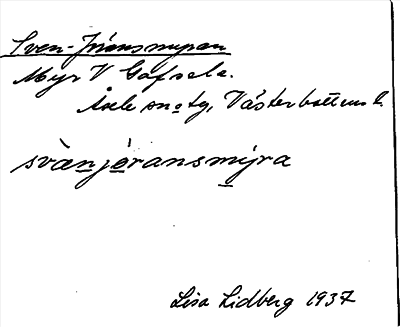 Sven-Jöransmyran
Myr V Gafsele.
Åsele sn o tg, Västerbottens l.
svänjöransmýra
Lisa Lidberg 1937